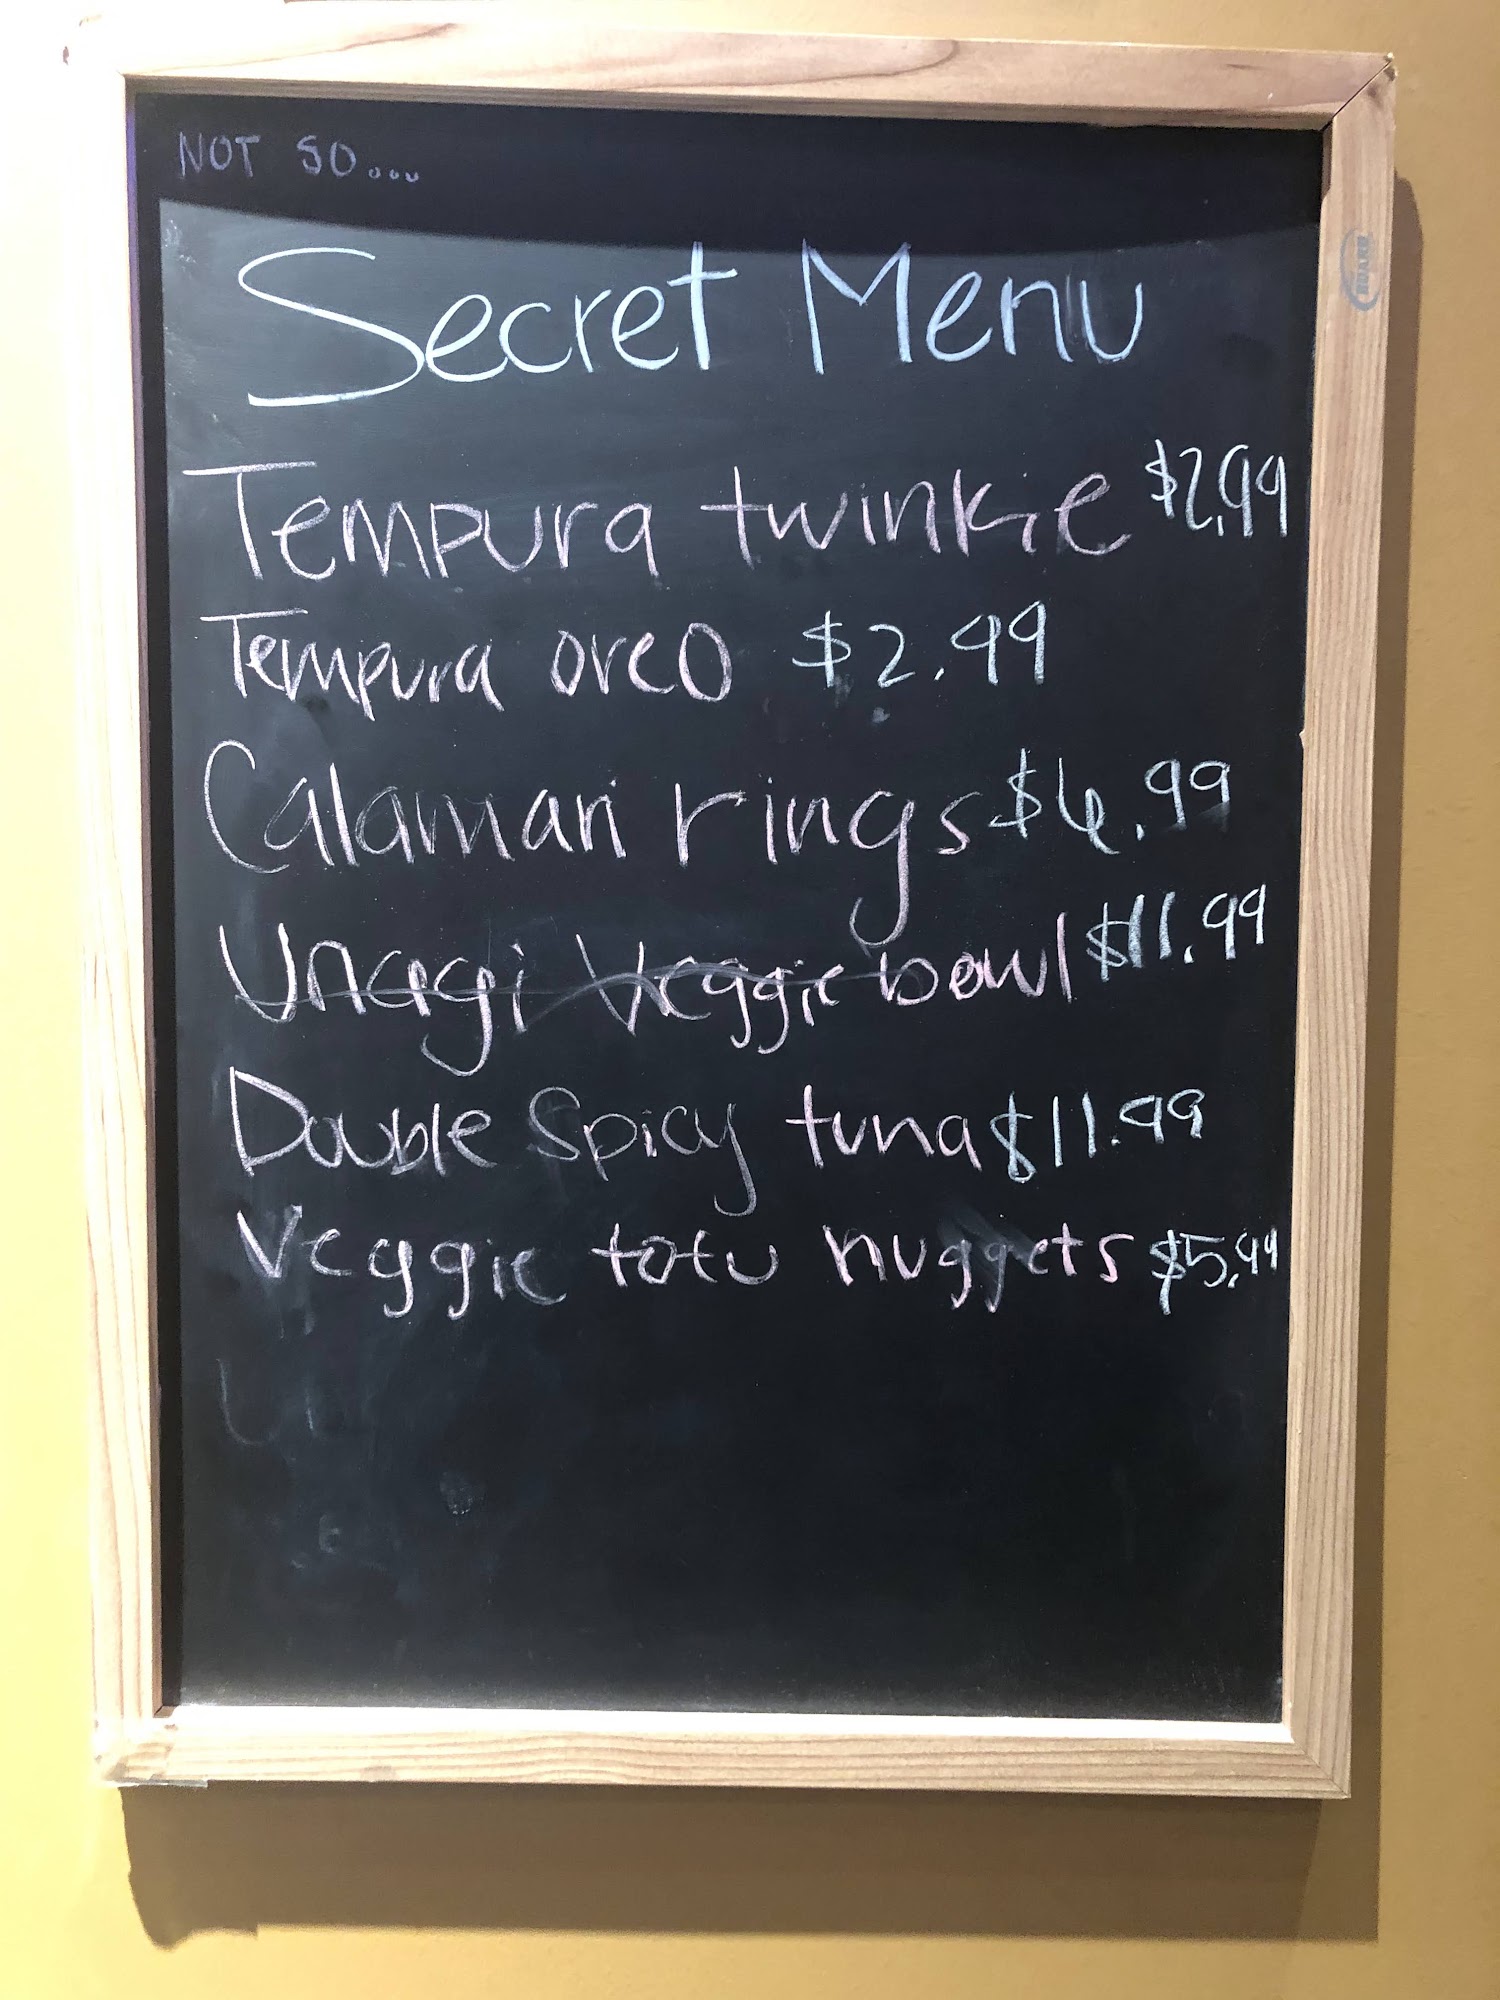 NOT SO...
Secret Menu
Tempura twinkie $2.99
Tempura oreo $2.99
Calamari rings $6.99
Unagi Veggie bowl $11.99
Double Spicy tuna $11.99
Veggie tofu nuggets $5.99